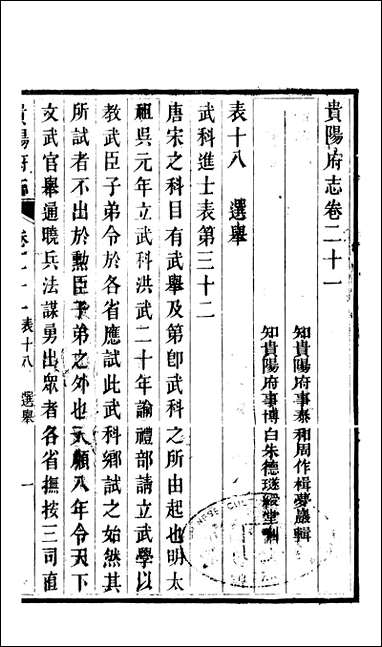 貴陽府志卷二十一
知貴陽府事泰和周作楫夢巖輯
知貴陽府事博白朱德璲綬堂
表十八　選舉
武科進士表第三十二
唐宋之科目有武舉及第卽武科之所由起也明太
祖吳元年立武科洪武二十年諭禮部請立武學以
教武臣子弟令於各省應試此武科鄉試之始然其
所試者不出於勳臣子弟之外也天順八年令天下
文武官舉通曉兵法謀勇出眾者各省撫按三司直
貴陽府志
表十八　選舉
一